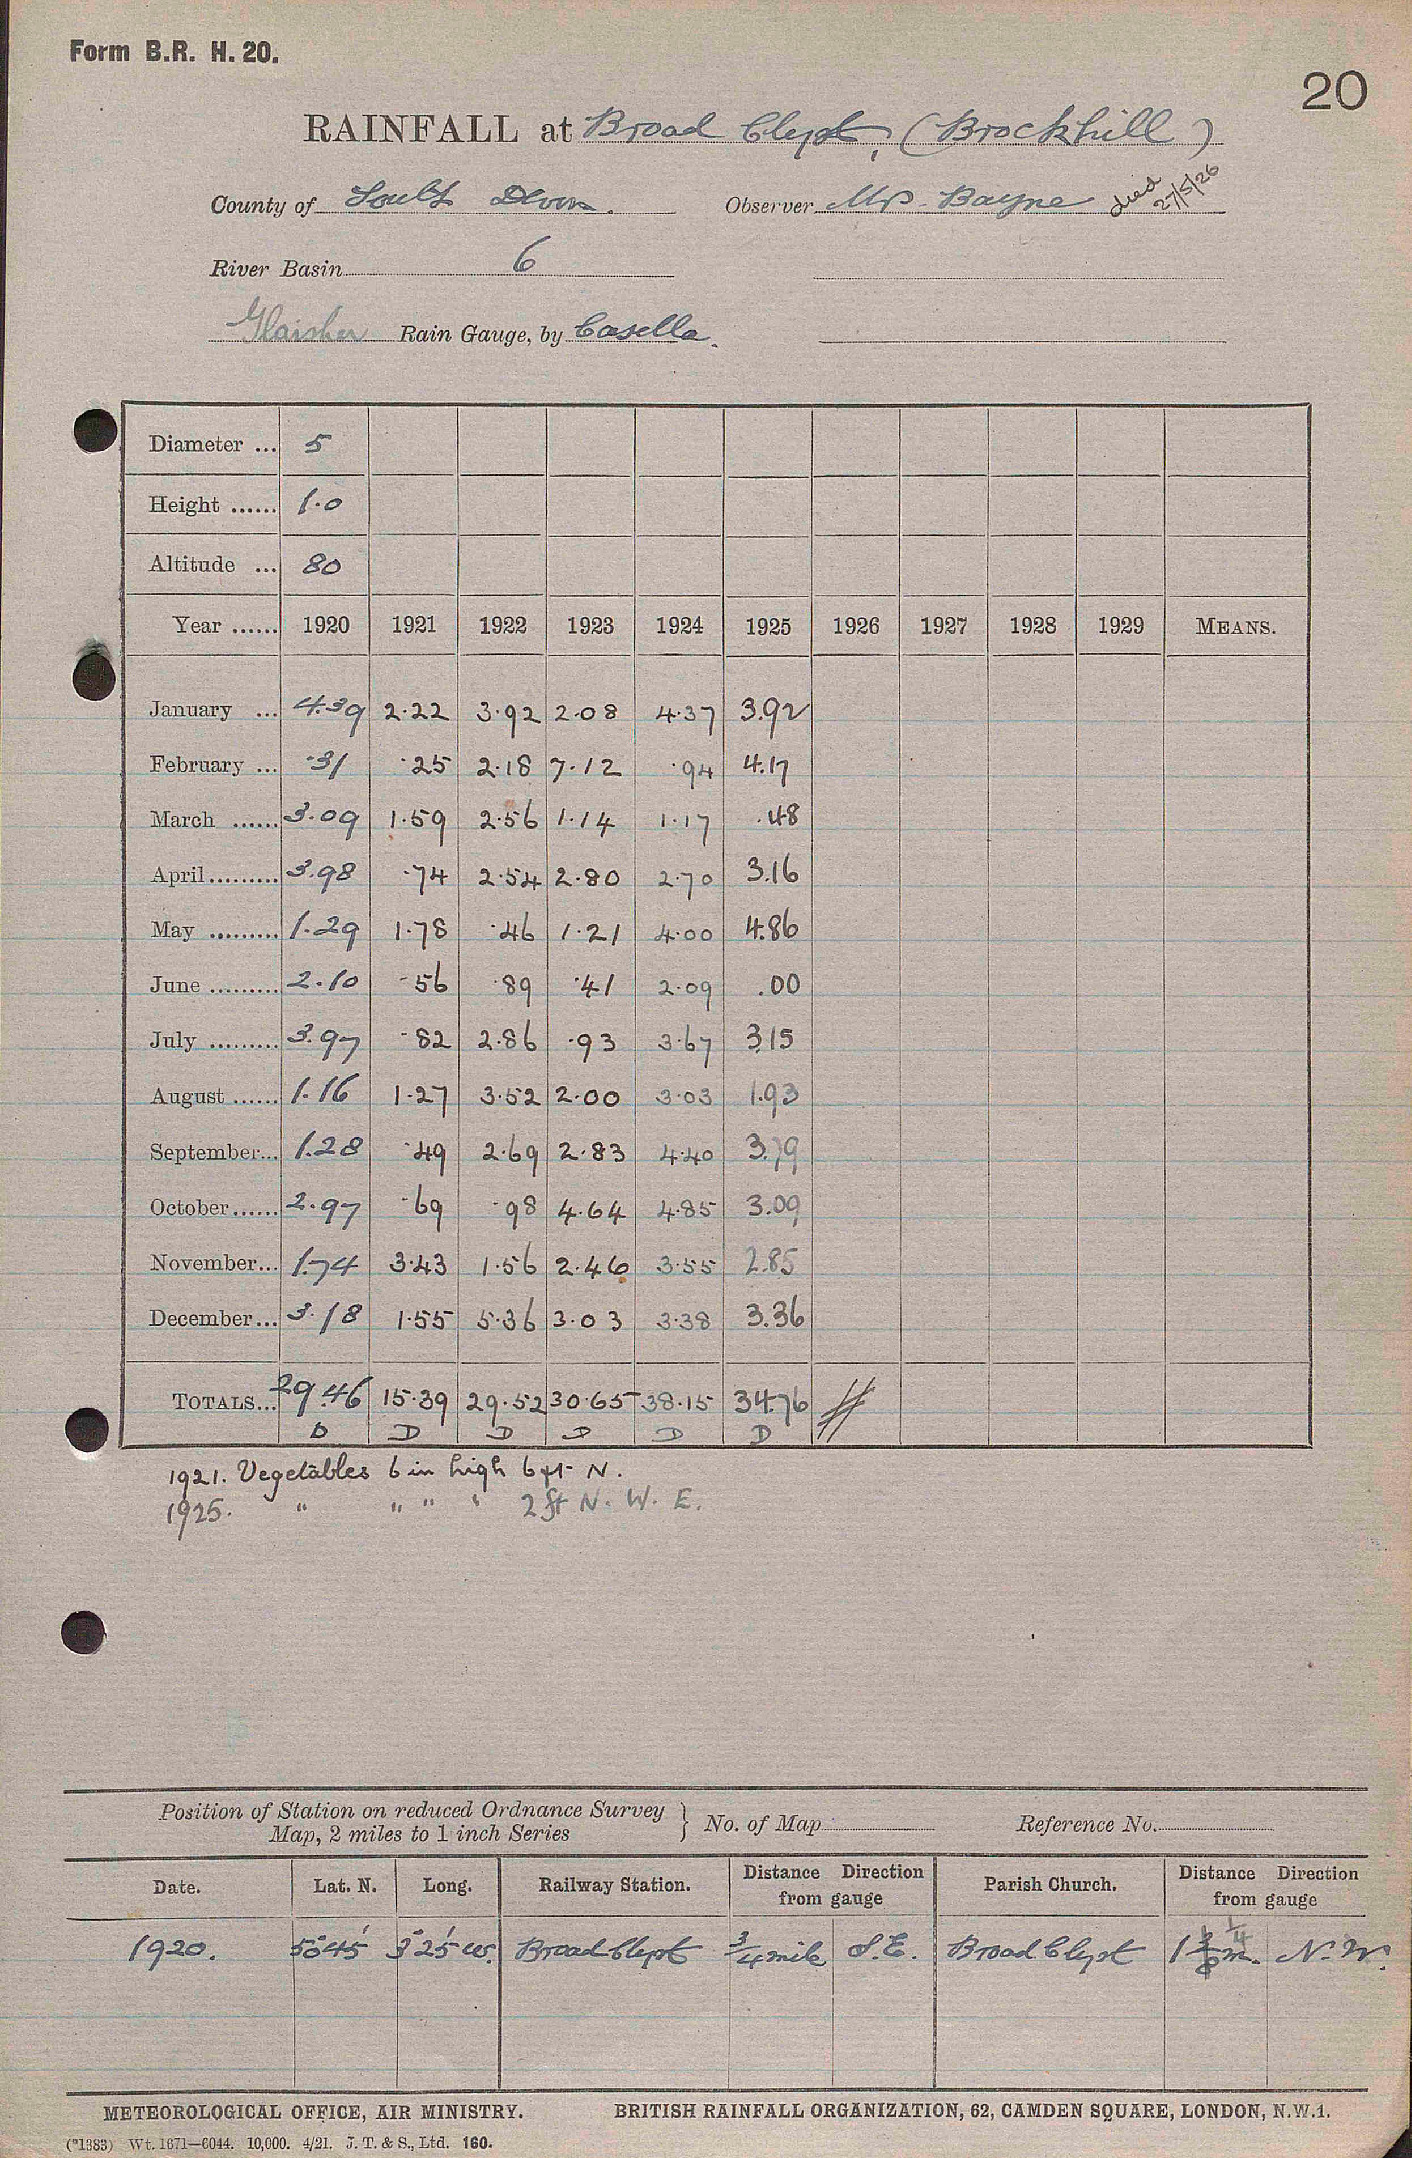 Form B.R. H. 20.
20
RAINFALL at Broad Clyst, (Brockhill)
County of South Devon. Observer Mrs Bayne died 27/5/26
River Basin 6
Glaisher Rain Gauge, by Casella.
Diameter ... 5
Height ...... 1.0
Altitude ... 80
Year ...... 1920 1921 1922 1923 1924 1925 1926 1927 1928 1929 MEANS.
January ... 4.39 2.22 3.92 2.08 4.37 3.92
February ... .31 .25 2.18 7.12 .94 4.17
March ...... 3.09 1.59 2.56 1.14 1.17 .48
April ......... 3.98 .74 2.54 2.80 2.70 3.16
May ......... 1.29 1.78 .46 1.21 4.00 4.86
June ......... 2.10 .56 .89 .41 2.09 .00
July ......... 3.97 .82 2.86 .93 3.67 3.15
August ...... 1.16 1.27 3.52 2.00 3.03 1.93
September... 1.28 .49 2.69 2.83 4.40 3.79
October ...... 2.97 .69 .98 4.64 4.85 3.09
November... 1.74 3.43 1.56 2.46 3.55 2.85
December... 3.18 1.55 5.36 3.03 3.38 3.36
TOTALS... 29.46 15.39 29.52 30.65 38.15 34.76
D D D D D D
1921. Vegetables 6 in high 6 ft N.
1925. " " " " 2 ft N. W. E.
Position of Station on reduced Ordnance Survey
Map, 2 miles to 1 inch Series } No. of Map Reference No.
Date. Lat. N. Long. Railway Station. Distance Direction from gauge Parish Church. Distance Direction from gauge
1920. 50°45' 3°25' W. Broad Clyst 3/4 mile S.E. Broad Clyst 1 1/4 m. N.W.
METEOROLOGICAL OFFICE, AIR MINISTRY. BRITISH RAINFALL ORGANIZATION, 62, CAMDEN SQUARE, LONDON, N.W.1.
(*1383) Wt. 1671—6044. 10,000. 4/21. J. T. & S., Ltd. 160.